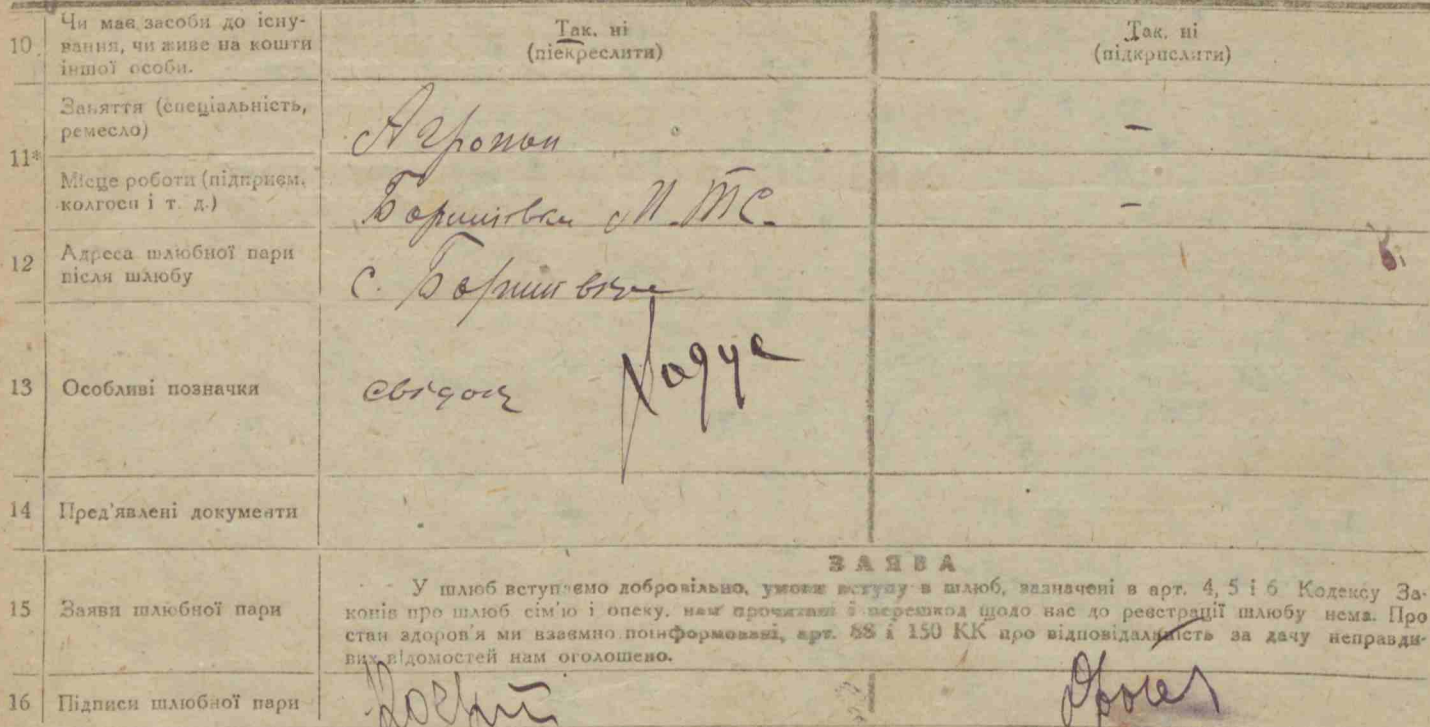 10 Чи має засоби до існу-
вання, чи живе на кошти
іншої особи.
Так. ні
(піекреслити)
Так. ні
(підкрислити)
11*
Заняття (спеціальність,
ремесло)
Агроном
-
Місце роботи (підприєм.
колгосп і т. д.)
Борщівка М.Т.С.
-
12 Адреса шлюбної пари
після шлюбу
с. Борщівка
13 Особливі позначки
свідоц
14 Пред'явлені документи
ЗАЯВА
15 Заяви шлюбної пари
У шлюб вступаємо добровільно, умови вступу в шлюб, зазначені в арт. 4, 5 і 6 Кодексу За-
конів про шлюб сім'ю і опеку, нам прочитані і перешкод щодо нас до реєстрації шлюбу нема. Про
стан здоров'я ми взаємно поінформовані, арт. 88 і 150 КК про відповідальність за дачу неправди-
вих відомостей нам оголошено.
16 Підписи шлюбної пари